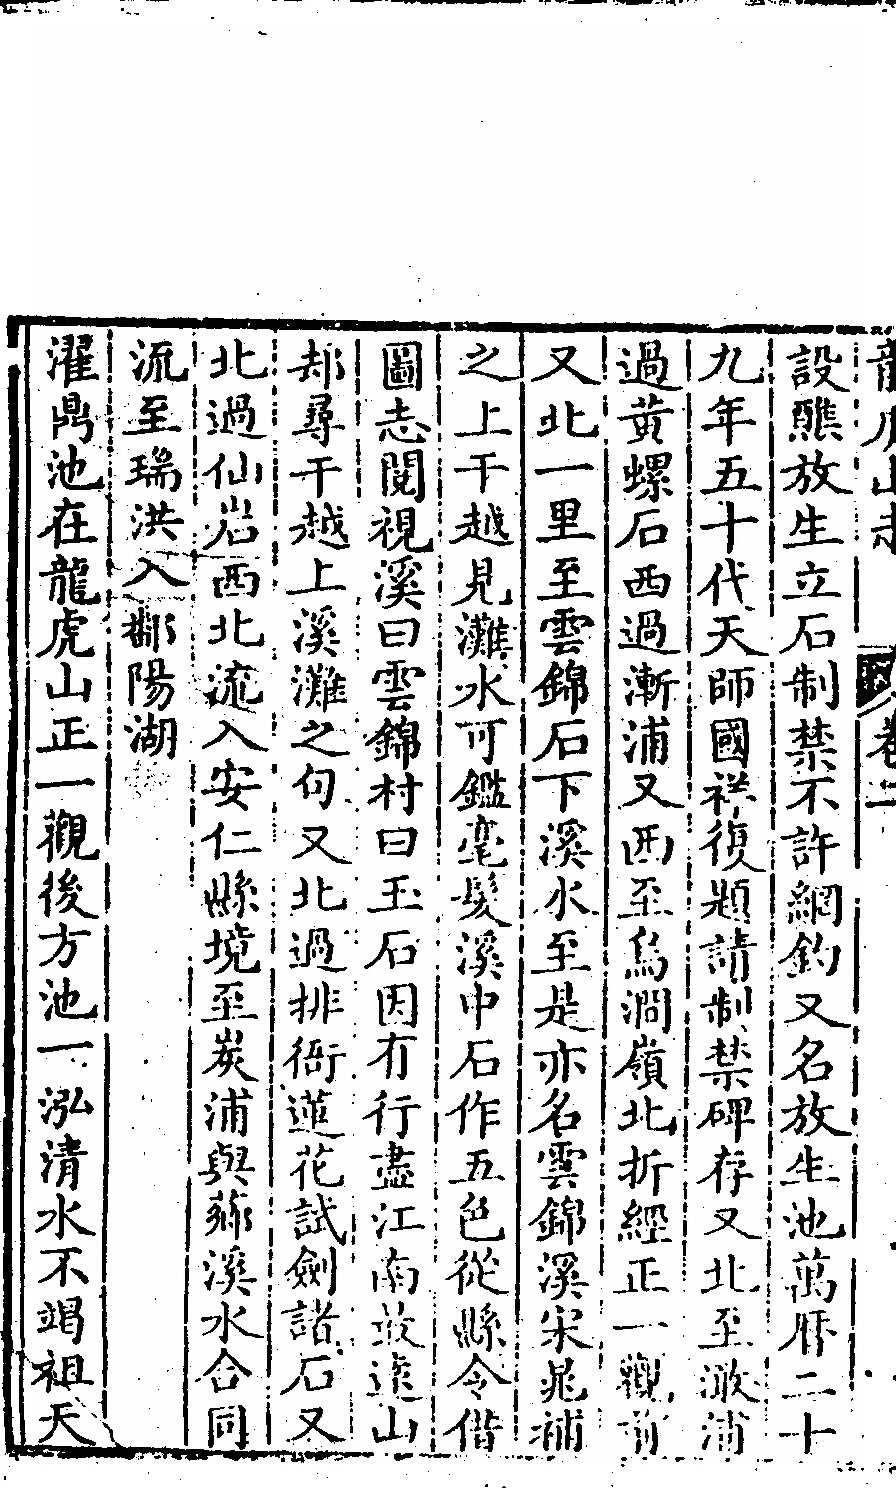 龍虎山志 卷二
設醮放生立石制禁不許網釣又名放生池萬曆二十
九年五十代天師國祥復題請制禁碑存又北至潵浦
過黃螺石西過漸浦又西至烏澗嶺北折經正一觀前
又北一里至雲錦石下溪水至是亦名雲錦溪宋晁補
之上干越見灘水可鑑毫髮溪中石作五色從縣令借
圖志閱視溪曰雲錦村曰玉石因有行盡江南數遠山
却尋干越上溪灘之句又北過排衙蓮花試劍諸石又
北過仙岩西北流入安仁縣境至炭浦與蘇溪水合同
流至瑞洪入鄱陽湖
濯鼎池在龍虎山正一觀後方池一泓清水不竭祖天